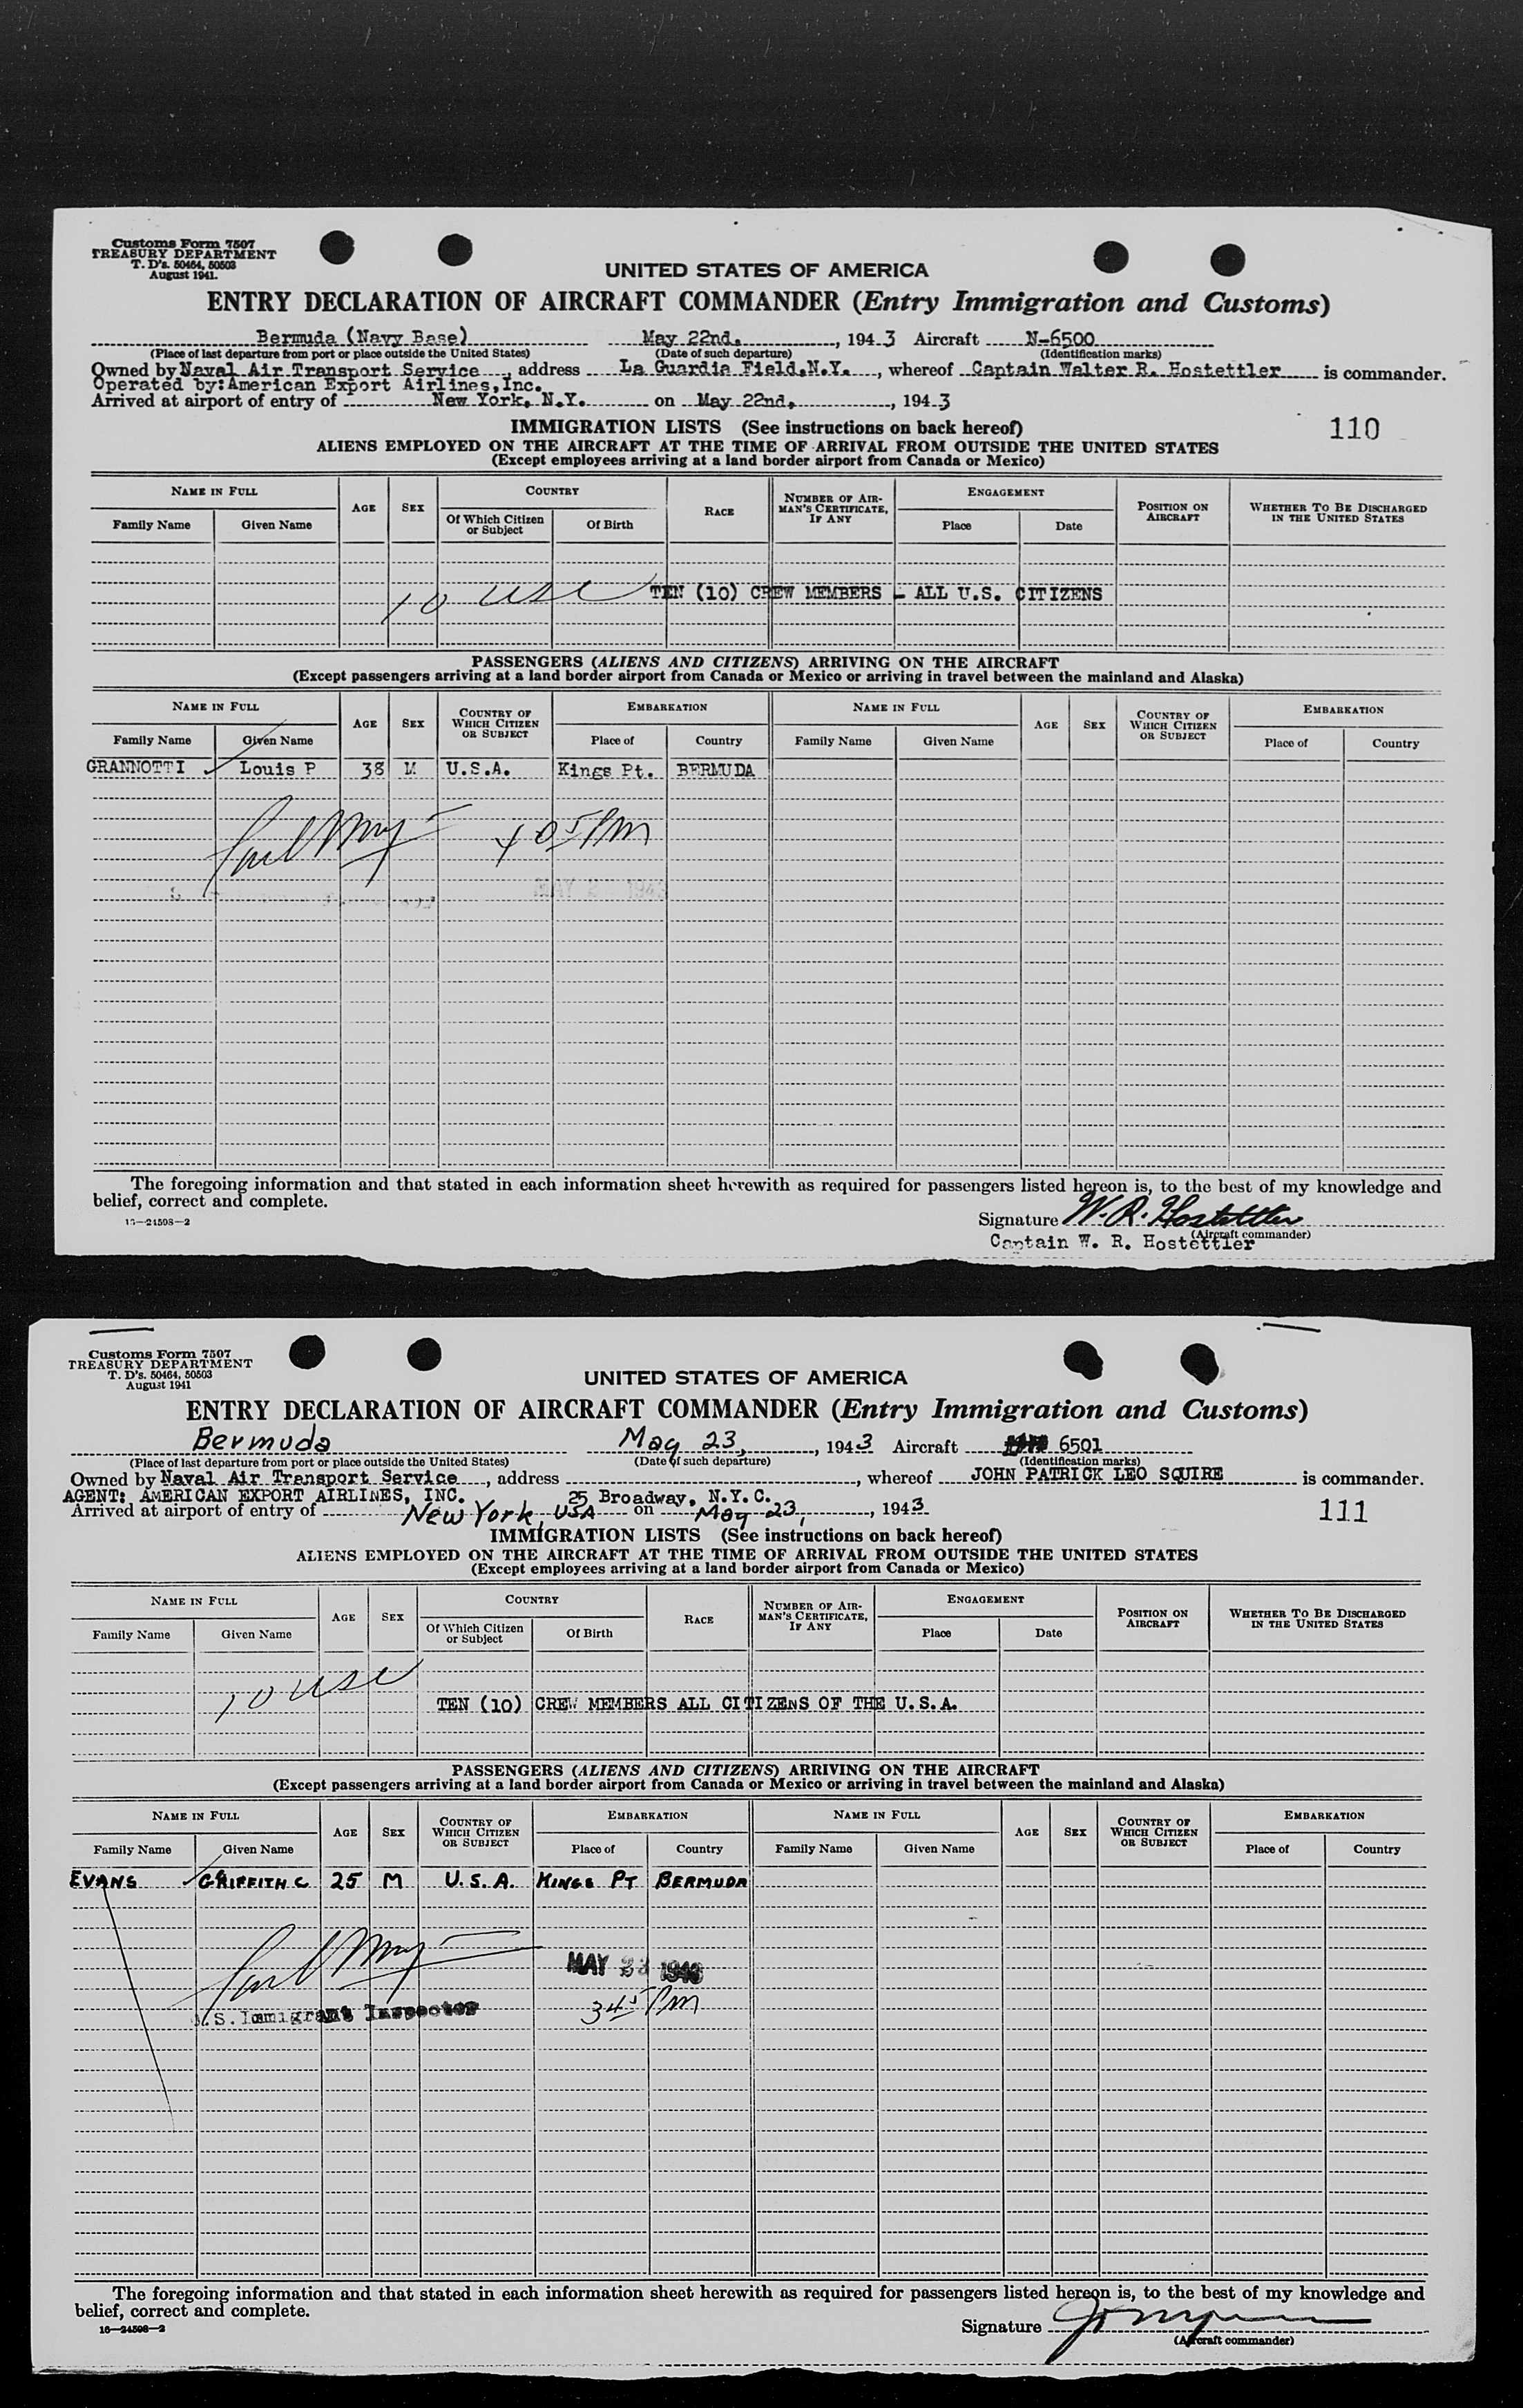 Customs Form 7507
TREASURY DEPARTMENT
T. D's. 50464, 50503
August 1941.
UNITED STATES OF AMERICA
ENTRY DECLARATION OF AIRCRAFT COMMANDER (Entry Immigration and Customs)
Bermuda (Navy Base) May 22nd. , 1943 Aircraft N-6500
(Place of last departure from port or place outside the United States) (Date of such departure) (Identification marks)
Owned by Naval Air Transport Service , address La Guardia Field, N.Y. , whereof Captain Walter R. Hostettler is commander.
Operated by: American Export Airlines, Inc.
Arrived at airport of entry of New York, N.Y. on May 22nd, , 1943
IMMIGRATION LISTS (See instructions on back hereof) 110
ALIENS EMPLOYED ON THE AIRCRAFT AT THE TIME OF ARRIVAL FROM OUTSIDE THE UNITED STATES
(Except employees arriving at a land border airport from Canada or Mexico)
NAME IN FULL AGE SEX COUNTRY RACE NUMBER OF AIRMAN'S CERTIFICATE, IF ANY ENGAGEMENT POSITION ON AIRCRAFT WHETHER TO BE DISCHARGED IN THE UNITED STATES
Family Name Given Name Of Which Citizen or Subject Of Birth Place Date
10 USC TEN (10) CREW MEMBERS - ALL U.S. CITIZENS
PASSENGERS (ALIENS AND CITIZENS) ARRIVING ON THE AIRCRAFT
(Except passengers arriving at a land border airport from Canada or Mexico or arriving in travel between the mainland and Alaska)
NAME IN FULL AGE SEX COUNTRY OF WHICH CITIZEN OR SUBJECT EMBARKATION NAME IN FULL AGE SEX COUNTRY OF WHICH CITIZEN OR SUBJECT EMBARKATION
Family Name Given Name Place of Country Family Name Given Name Place of Country
GRANNOTTI Louis P 38 M U.S.A. Kings Pt. BERMUDA
405 PM
MAY 2 1943
The foregoing information and that stated in each information sheet herewith as required for passengers listed hereon is, to the best of my knowledge and
belief, correct and complete.
16—24598—2
Signature W. R. Hostettler
(Aircraft commander)
Captain W. R. Hostettler
Customs Form 7507
TREASURY DEPARTMENT
T. D's. 50464, 50503
August 1941
UNITED STATES OF AMERICA
ENTRY DECLARATION OF AIRCRAFT COMMANDER (Entry Immigration and Customs)
Bermuda May 23, , 1943 Aircraft 6501
(Place of last departure from port or place outside the United States) (Date of such departure) (Identification marks)
Owned by Naval Air Transport Service , address , whereof JOHN PATRICK LEO SQUIRE is commander.
AGENT: AMERICAN EXPORT AIRLINES, INC. 25 Broadway, N.Y.C.
Arrived at airport of entry of New York, USA on May 23, , 1943
111
IMMIGRATION LISTS (See instructions on back hereof)
ALIENS EMPLOYED ON THE AIRCRAFT AT THE TIME OF ARRIVAL FROM OUTSIDE THE UNITED STATES
(Except employees arriving at a land border airport from Canada or Mexico)
NAME IN FULL AGE SEX COUNTRY RACE NUMBER OF AIRMAN'S CERTIFICATE, IF ANY ENGAGEMENT POSITION ON AIRCRAFT WHETHER TO BE DISCHARGED IN THE UNITED STATES
Family Name Given Name Of Which Citizen or Subject Of Birth Place Date
10 USC
TEN (10) CREW MEMBERS ALL CITIZENS OF THE U.S.A.
PASSENGERS (ALIENS AND CITIZENS) ARRIVING ON THE AIRCRAFT
(Except passengers arriving at a land border airport from Canada or Mexico or arriving in travel between the mainland and Alaska)
NAME IN FULL AGE SEX COUNTRY OF WHICH CITIZEN OR SUBJECT EMBARKATION NAME IN FULL AGE SEX COUNTRY OF WHICH CITIZEN OR SUBJECT EMBARKATION
Family Name Given Name Place of Country Family Name Given Name Place of Country
EVANS GRIFFITH C 25 M U.S.A. KINGS PT BERMUDA
MAY 23 1943
U.S. Immigrant Inspector 345 PM
The foregoing information and that stated in each information sheet herewith as required for passengers listed hereon is, to the best of my knowledge and
belief, correct and complete.
16—24598—2
Signature
(Aircraft commander)